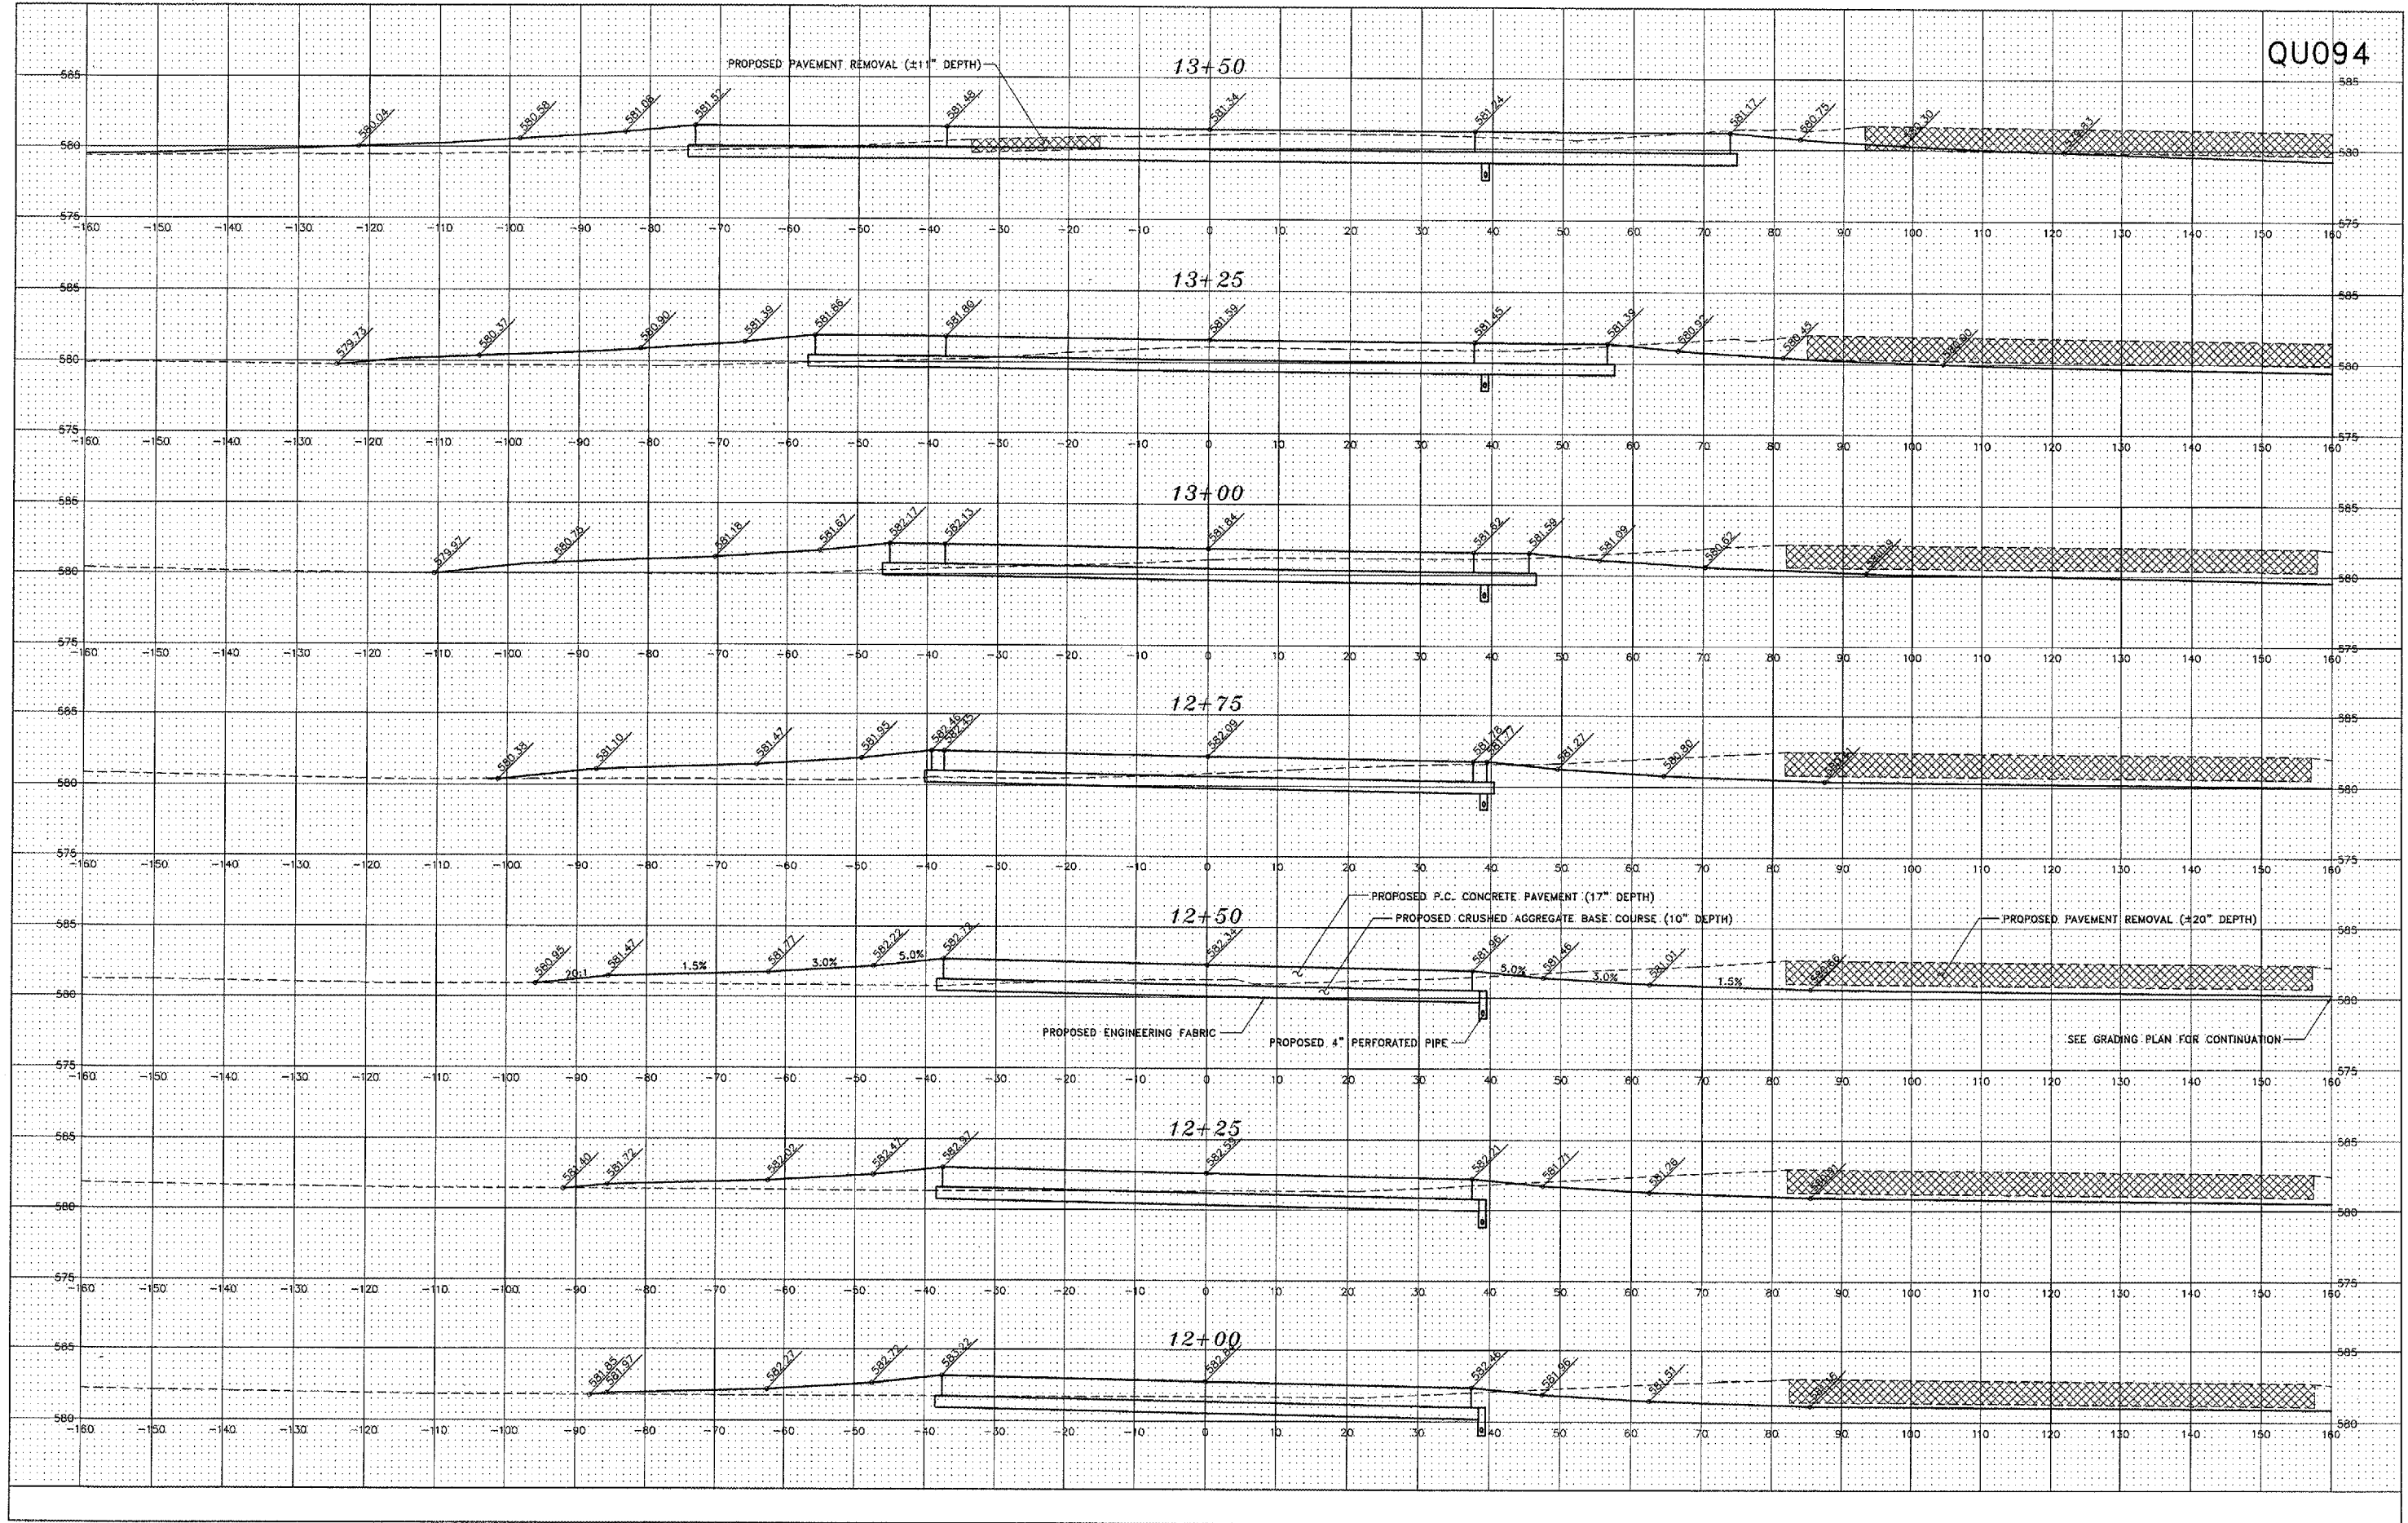 QU094
13+50
PROPOSED PAVEMENT REMOVAL (±11" DEPTH)
585 585
580.04 580.58 581.06 581.52 581.48 581.34 581.24 581.17 580.75 580.30 579.83
580 580
575 575
-160 -150 -140 -130 -120 -110 -100 -90 -80 -70 -60 -50 -40 -30 -20 -10 0 10 20 30 40 50 60 70 80 90 100 110 120 130 140 150 160
13+25
585 585
579.73 580.37 580.90 581.39 581.86 581.80 581.59 581.45 581.39 580.92 580.45
580 580
575 575
-160 -150 -140 -130 -120 -110 -100 -90 -80 -70 -60 -50 -40 -30 -20 -10 0 10 20 30 40 50 60 70 80 90 100 110 120 130 140 150 160
13+00
585 585
579.97 580.75 581.18 581.67 582.17 582.13 581.84 581.62 581.59 581.09 580.62
580 580
575 575
-160 -150 -140 -130 -120 -110 -100 -90 -80 -70 -60 -50 -40 -30 -20 -10 0 10 20 30 40 50 60 70 80 90 100 110 120 130 140 150 160
12+75
585 585
580.38 581.10 581.47 581.95 582.46 582.45 582.09 581.78 581.77 581.27 580.80
580 580
575 575
-160 -150 -140 -130 -120 -110 -100 -90 -80 -70 -60 -50 -40 -30 -20 -10 0 10 20 30 40 50 60 70 80 90 100 110 120 130 140 150 160
PROPOSED P.C. CONCRETE PAVEMENT (17" DEPTH)
12+50
PROPOSED CRUSHED AGGREGATE BASE COURSE (10" DEPTH)
PROPOSED PAVEMENT REMOVAL (±20" DEPTH)
585 585
580.95 581.47 581.77 582.22 582.72 582.34 581.96 581.46 581.01
20:1 1.5% 3.0% 5.0% 5.0% 3.0% 1.5%
580 580
PROPOSED ENGINEERING FABRIC
PROPOSED 4" PERFORATED PIPE
SEE GRADING PLAN FOR CONTINUATION
575 575
-160 -150 -140 -130 -120 -110 -100 -90 -80 -70 -60 -50 -40 -30 -20 -10 0 10 20 30 40 50 60 70 80 90 100 110 120 130 140 150 160
12+25
585 585
581.40 581.72 582.02 582.47 582.97 582.59 582.21 581.71 581.26
580 580
575 575
-160 -150 -140 -130 -120 -110 -100 -90 -80 -70 -60 -50 -40 -30 -20 -10 0 10 20 30 40 50 60 70 80 90 100 110 120 130 140 150 160
12+00
585 585
581.85 581.97 582.27 582.72 583.22 582.84 582.46 581.96 581.51
580 580
-160 -150 -140 -130 -120 -110 -100 -90 -80 -70 -60 -50 -40 -30 -20 -10 0 10 20 30 40 50 60 70 80 90 100 110 120 130 140 150 160